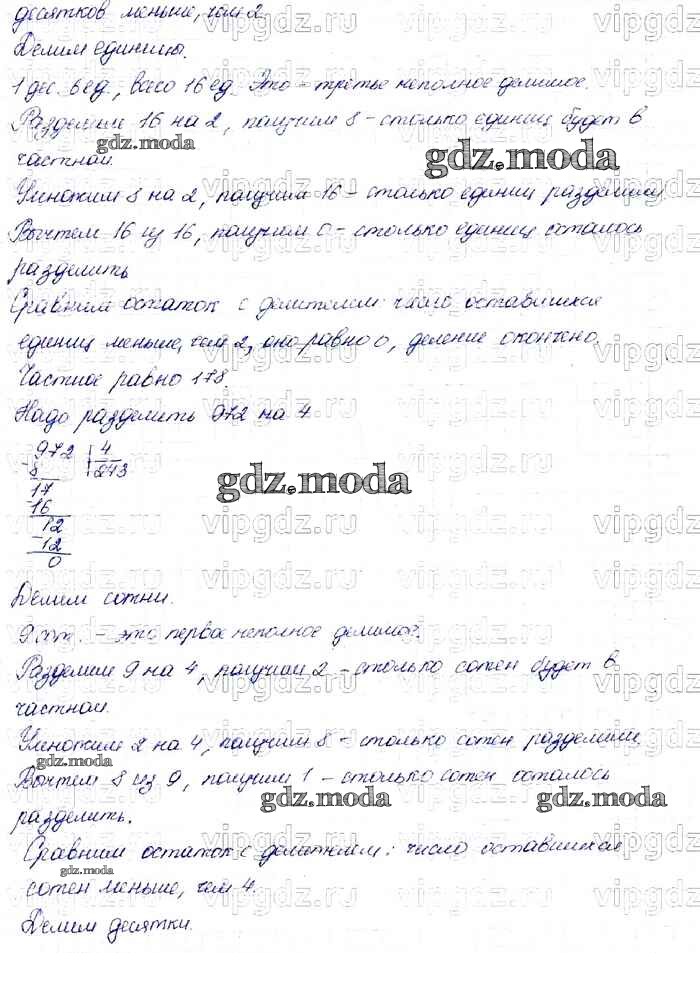 десятков меньше, чем 2.
Делим единицы.
1 дес. 6 ед., всего 16 ед. Это - третье неполное делимое.
Разделим 16 на 2, получим 8 - столько единиц будет в
частном.
Умножим 8 на 2, получим 16 - столько единиц разделили.
Вычтем 16 из 16, получим 0 - столько единиц осталось
разделить
Сравним остаток с делителем: число оставшихся
единиц меньше, чем 2, оно равно 0, деление окончено.
Частное равно 178.
Надо разделить 972 на 4
972 4
8 243
17
16
12
12
0
Делим сотни.
9 сот. - это первое неполное делимое.
Разделим 9 на 4, получим 2 - столько сотен будет в
частном.
Умножим 2 на 4, получим 8 - столько сотен разделили.
Вычтем 8 из 9, получим 1 - столько сотен осталось
разделить.
Сравним остаток с делителем: число оставшихся
сотен меньше, чем 4.
Делим десятки.
gdz.moda
gdz.moda
gdz.moda
gdz.moda
gdz.moda
gdz.moda
gdz.moda
vipgdz.ru